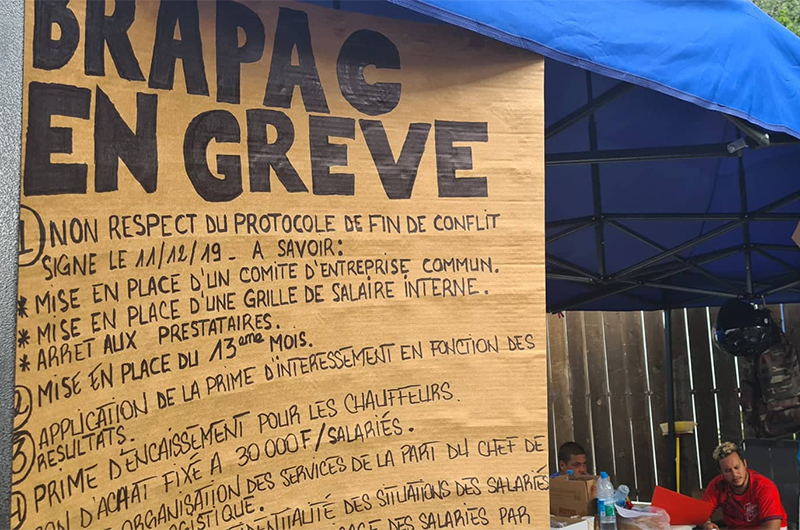 BRAPAC
EN GREVE
1 NON RESPECT DU PROTOCOLE DE FIN DE CONFLIT
SIGNE LE 11/12/19 - A SAVOIR:
* MISE EN PLACE D'UN COMITE D'ENTREPRISE COMMUN.
* MISE EN PLACE D'UNE GRILLE DE SALAIRE INTERNE.
* ARRET AUX PRESTATAIRES.
2 MISE EN PLACE DU 13ème MOIS.
3 APPLICATION DE LA PRIME D'INTERESSEMENT EN FONCTION DES
RESULTATS.
4 PRIME D'ENCAISSEMENT POUR LES CHAUFFEURS.
BON D'ACHAT FIXÉ A 30 000 F/SALARIÉS.
ORGANISATION DES SERVICES DE LA PART DU CHEF DE
DES SITUATIONS DES SALARIÉS
DES SALARIES PAR